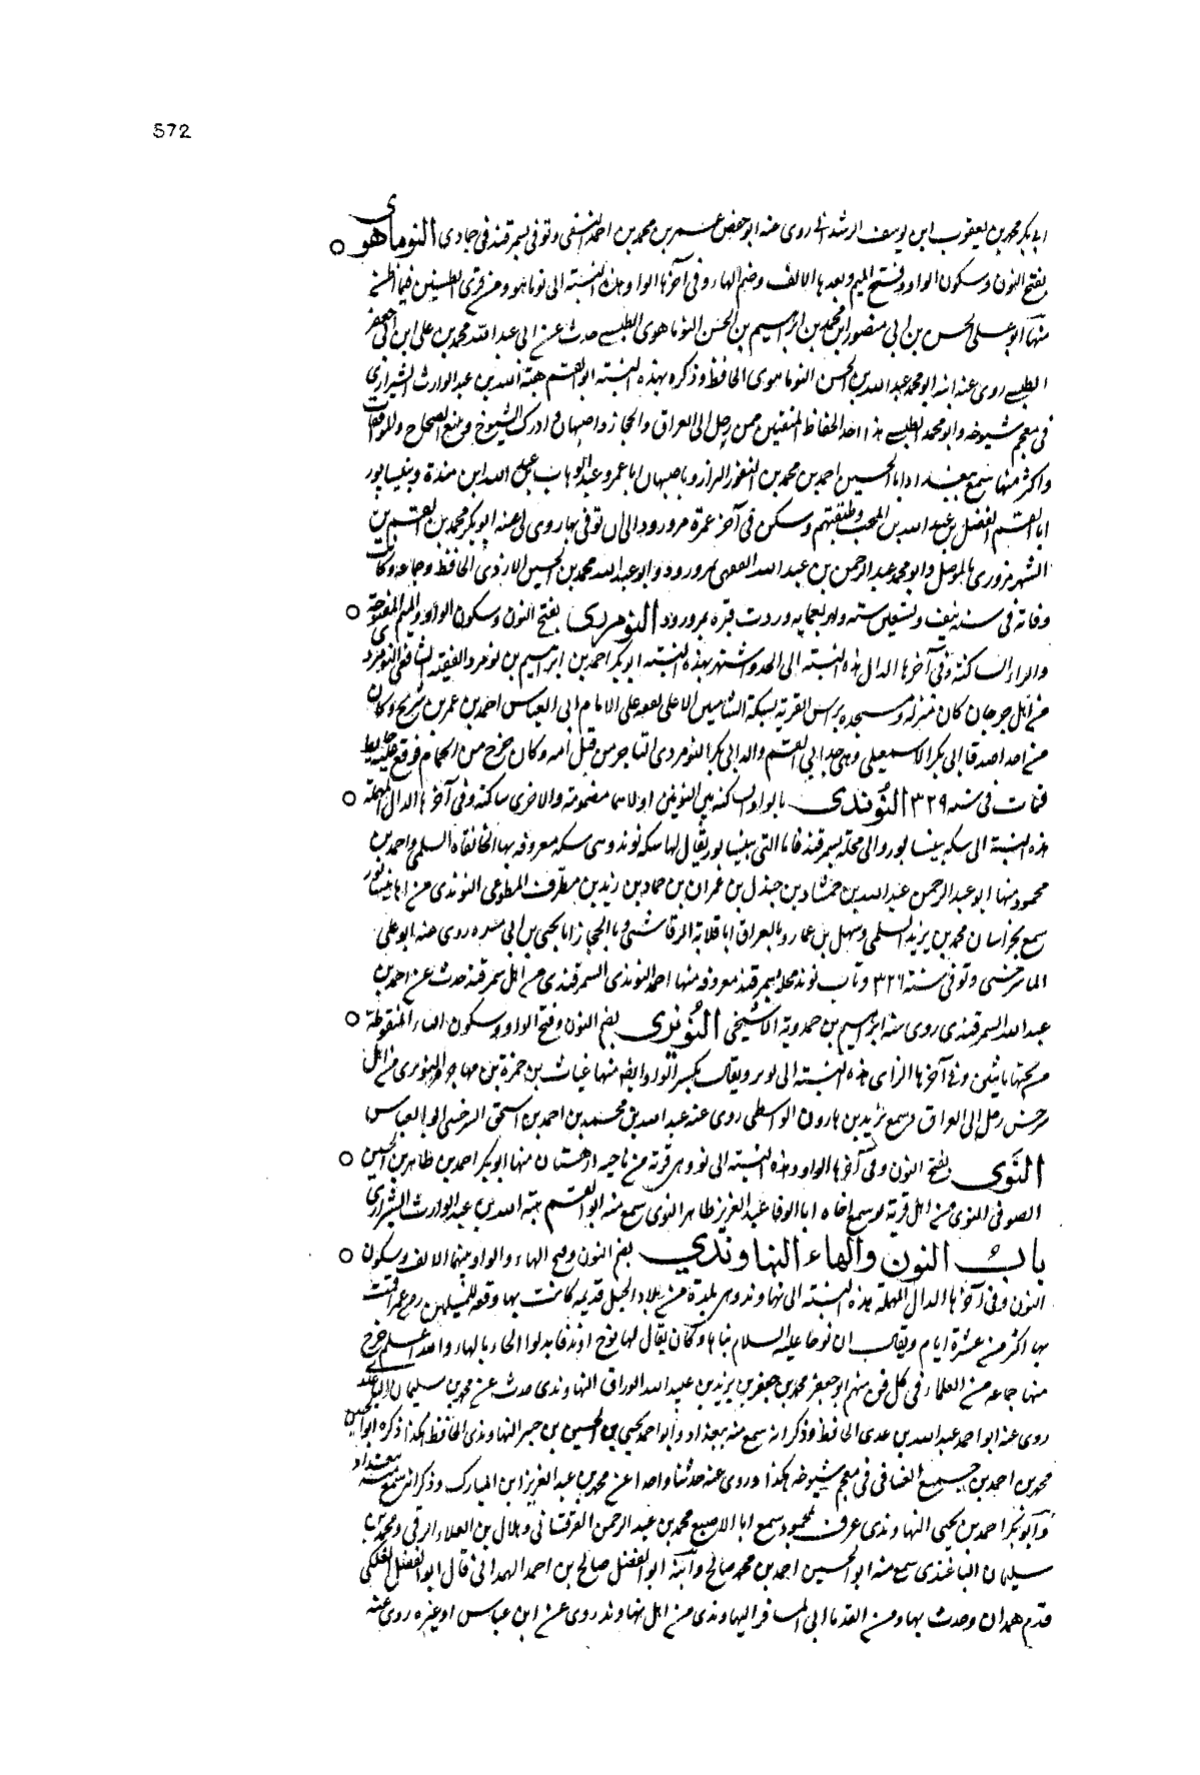 572
ابا بكر محمد بن يعقوب ابن يوسف الرشدي روى عنه ابو حفص عمر بن محمد بن احمد النسفي وتوفى بسمرقند في جمادى النوماهوى
بفتح النون وسكون الواو وفتح الميم وبعدها الالف وضم الهاء وفي آخرها الواو هذه النسبة الى نوماهو وهى من قرى الطبسين فيما اظن
منها ابو على الحسن بن ابى منصور محمد بن ابراهيم بن الحسن النوماهوى الطبسي حدث عن ابى عبد الله محمد بن على ابن جعفر
الطبسي روى عنه ابنه ابو محمد عبد الله بن الحسن النوماهوى الحافظ وذكره بهذه النسبة ابو القسم هبة الله بن عبد الوارث الشيرازى
في معجم شيوخه وابو محمد الطبسي هذا احد الحفاظ المتقنين ممن رحل الى العراق والحجاز واصبهان وادرك الشيوخ وجمع الصحاح والموقوفات
واكثر منها سمع ببغداد ابا الحسين احمد بن محمد بن النقور البزاز وباصبهان ابا عمرو عبد الوهاب بن عبد الله ابن مندة وبنيسابور
ابا القسم الفضل بن عبد الله بن المحب وطبقتهم وسكن في آخر عمره مرورود الى ان توفى بها روى لى عنه ابو بكر محمد بن القسم بن
الشهرزورى بالموصل وابو محمد عبد الرحمن بن عبد الله الفقيه بمرورود وابو عبد الله محمد بن الحسين الازدى الحافظ وجماعة وكانت
وفاته في سنة نيف وتسعين سنة واربعماية وزرت قبره بمرورود النومردى بفتح النون وسكون الواو والميم المفتوحة
والراء الساكنة وفي آخرها الدال هذه النسبة الى الجد واشتهر بهذه النسبة ابو بكر احمد بن ابراهيم بن نومرد الفقيه الشافعي النومردى
من اهل جرجان كان منزله ومسجده براس القرية بسكة الاعلى تفقه على الامام ابى العباس احمد بن عمر بن سريج وكان
من احد اصدقا ابى بكر الاسمعيلى وهو جد ابى القسم والد ابى بكر النومردى التاجر من قبل امه وكان خرج من الحمام فوقع عليه حايط
فمات في سنة ٣٢٩ النوندى بالواو الساكنة بين النونين اولاهما مضمومة والاخرى ساكنة وفي آخرها الدال المهملة
هذه النسبة الى سكة بنيسابور والى محلة بسمرقند فاما التى بنيسابور يقال لها سكة نوند وهى سكة معروفة بها الخانقاه السلمى واحمد بن
محمود منها ابو عبد الرحمن عبد الله بن حمشاد بن جندل بن عمران بن حماد بن زيد بن مطرف المطوعى النوندى من اهل نيسابور
سمع بخراسان محمد بن يزيد السلمى وسهل بن عمار وبالعراق ابا قلابة الرقاشى وبالحجاز ابا يحيى بن ابى مسرة روى عنه ابو على
الماسرجسى وتوفى سنة ٣٢٦ وباب نوند محلة بسمرقند معروفة منها احمد النوندى السمرقندى من اهل سمرقند حدث عن احمد بن
عبد الله السمرقندى روى عنه ابراهيم بن حمدوية الاشتيخنى النويزى بضم النون وفتح الواو وسكون الياء المنقوطة
من تحتها باثنتين وفي آخرها الزاى هذه النسبة الى نويز ويقال بكسر الواو ايضا منها غياث بن حمزة بن مهاجر النويزى من اهل
سرخس رحل الى العراق وسمع يزيد بن هارون الواسطى روى عنه عبد الله بن محمد بن احمد بن اسحق السرخسى ابو العباس
النوى بفتح النون وفي آخرها الواو هذه النسبة الى نو وهى قرية من ناحية ارغستان منها ابو بكر احمد بن طاهر بن الحسين
الصوفى النوى من اهل قرية نو سمع اخاه ابا الوفا عبد العزيز طاهر النوى سمع منه ابو القسم هبة الله بن عبد الوارث الشيرازى
باب النون والهاء النهاوندي بضم النون وفتح الهاء والواو بينهما الالف وسكون
النون وفي آخرها الدال المهملة هذه النسبة الى نهاوند وهى بلدة من بلاد الجبل قديمة كانت بها وقعة للمسلمين زمن عمر اقامت
بها اكثر من عشرة ايام ويقال ان نوحا عليه السلام بناها وكان يقال لها نوح اوند فابدلوا الحاء بالهاء والله اعلم خرج
منها جماعة من العلماء في كل فن منهم ابو جعفر محمد بن جعفر بن يزيد بن عبد الله الوراق النهاوندى حدث عن محمد بن سليمان الباغندى
روى عنه ابو احمد عبد الله بن عدى الحافظ وذكر انه سمع منه ببغداد وابو احمد يحيى بن الحسين بن جبر النهاوندى الحافظ هكذا ذكره ابو الحسين
محمد بن احمد بن جميع الغسانى في معجم شيوخه هكذا وروى عنه حديثا واحدا عن محمد بن عبد العزيز ابن المبارك وذكر انه سمع منه ببغداد
وابو بكر احمد بن يحيى النهاوندى عرف بمحمود سمع ابا الاصبع محمد بن عبد الرحمن القرقسانى وهلال بن العلاء الرقى ومحمد بن
سليمان الباغندى سمع منه ابو الحسين احمد بن محمد صالح وابنه ابو الفضل صالح بن احمد الهمدانى قال ابو الفضل الفلكى
قدم همدان وحدث بها ومن القدما ابى المسافر النهاوندى من اهل نهاوند روى عن ابن عباس او غيره روى عنه